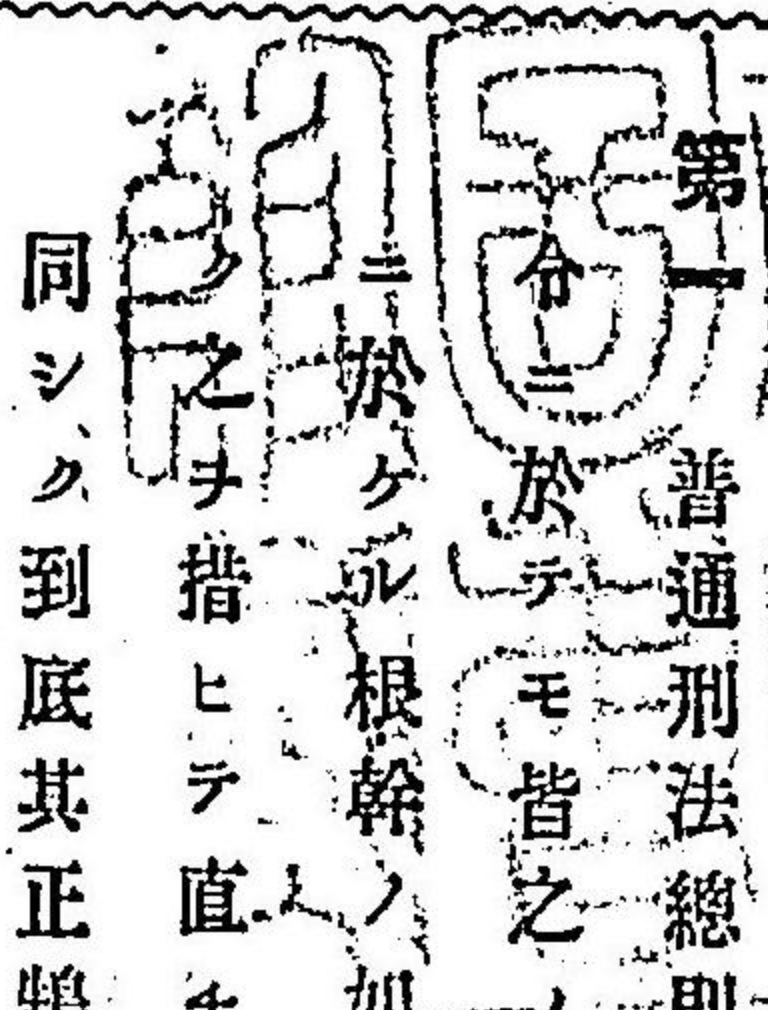 第一 普通刑法總則
令ニ於テモ皆之
ニ於ケル根幹ノ如
ク之ヲ措ヒテ直チ
同シク、到底其正鵠